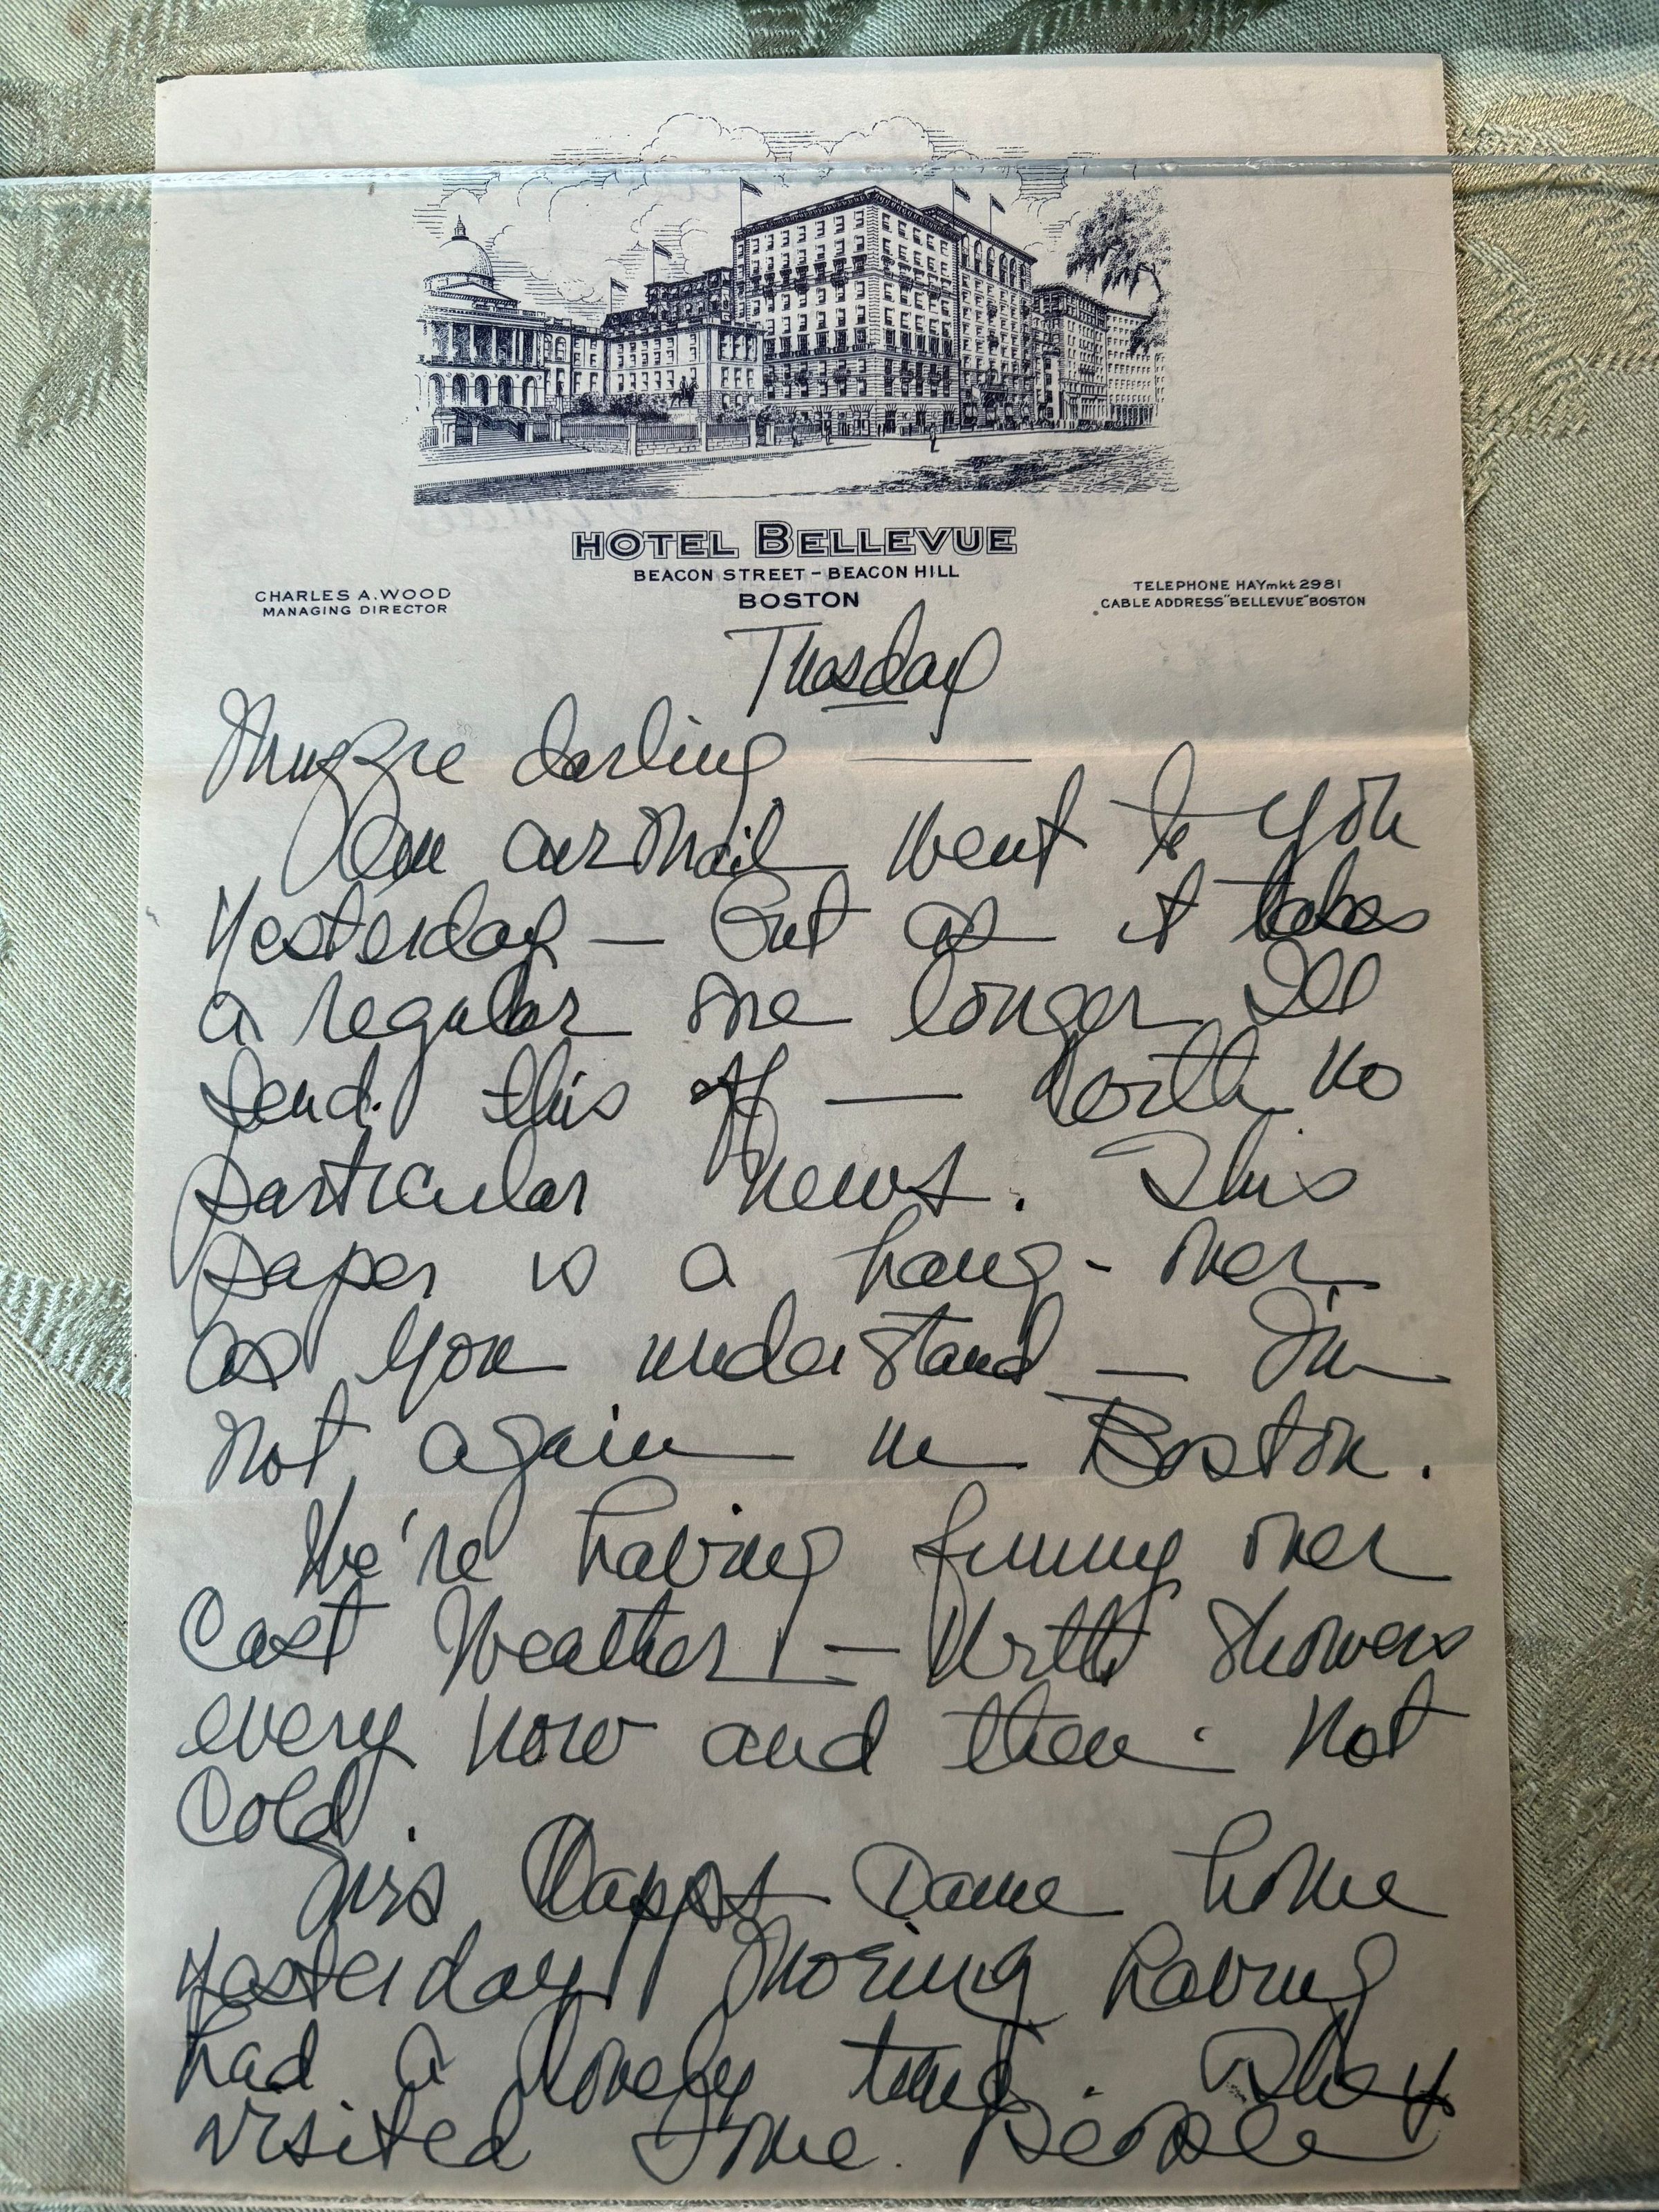 HOTEL BELLEVUE
BEACON STREET – BEACON HILL
BOSTON
CHARLES A. WOOD
MANAGING DIRECTOR
TELEPHONE HAYmkt 2981
CABLE ADDRESS "BELLEVUE" BOSTON
Tuesday
darling —
air mail went to you
yesterday — But as it takes
a regular one longer I'll
send this off — with no
particular news. This
paper is a hang-over
as you understand — I'm
not again in Boston.
We're having funny over
cast weather — with showers
every now and then. Not
cold.
Mrs Came home
yesterday moring having
had a lovely time. They
visited some people